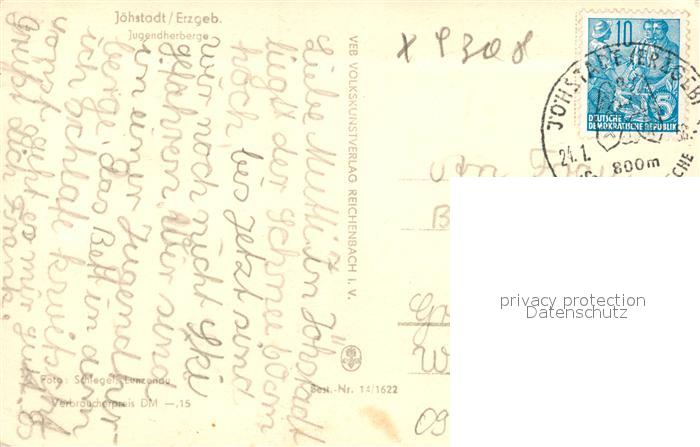 Jöhstadt / Erzgeb.
Jugendherberge
Liebe Mutti! In Jöhstadt
liegt der Schnee 60 cm
hoch bis jetzt sind
wir noch nicht Ski
gefahren. Wir sind
in einer Jugendher-
berge, das Bett in dem
ich schlafe quietscht
sonst geht es mir gut. Es
grüßt dich Frank.
Foto: Schlegel, Lunzenau
Verbraucherpreis DM —,15
VEB VOLKSKUNSTVERLAG REICHENBACH i. V.
Best.-Nr. 14/1622
X 9308
10
DEUTSCHE
DEMOKRATISCHE REPUBLIK
5
JÖHSTADT (ERZGEB
24.1.
800m
privacy protection
Datenschutz
09